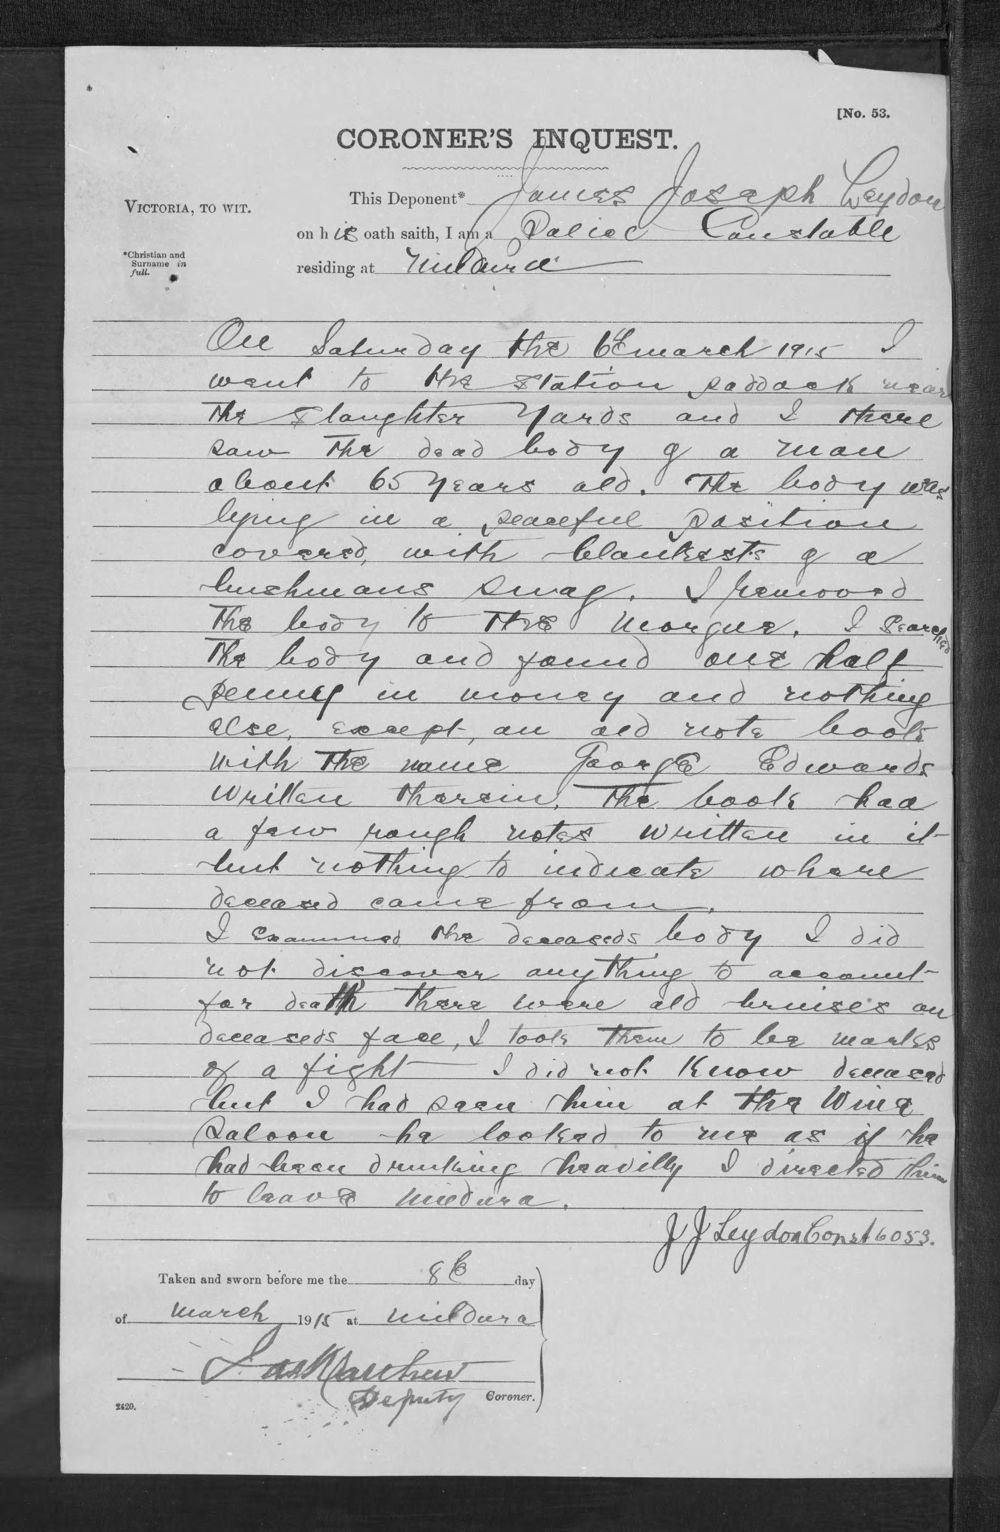 [No. 53.
CORONER'S INQUEST.
This Deponent* James Joseph Leydon
VICTORIA, TO WIT.
on his oath saith, I am a Police Constable
*Christian and
Surname in
full.
residing at Mildura
On Saturday the 6th march 1915 I
went to the Station paddock near
the Slaughter Yards and I there
saw the dead body of a man
about 65 Years old. The body was
lying in a peaceful position
covered, with blankests of a
bushmans swag. I removed
the body to the Morgue. I searched
the body and found one half
penny in money and nothing
else, except, an old note book
with the name George Edwards
written therein. The book had
a few rough notes written in it
but nothing to indicate where
deceased came from.
I examined the deceaseds body I did
not discover anything to account
for death there were old bruises on
deceaseds face, I took them to be marks
of a fight I did not know deceased
but I had seen him at the Wine
Saloon he looked to me as if he
had been drinking heavilly I directed him
to leave Mildura.
J J Leydon Const 6053.
Taken and sworn before me the 8th day
of March 1915 at Mildura
Deputy Coroner.
2420.